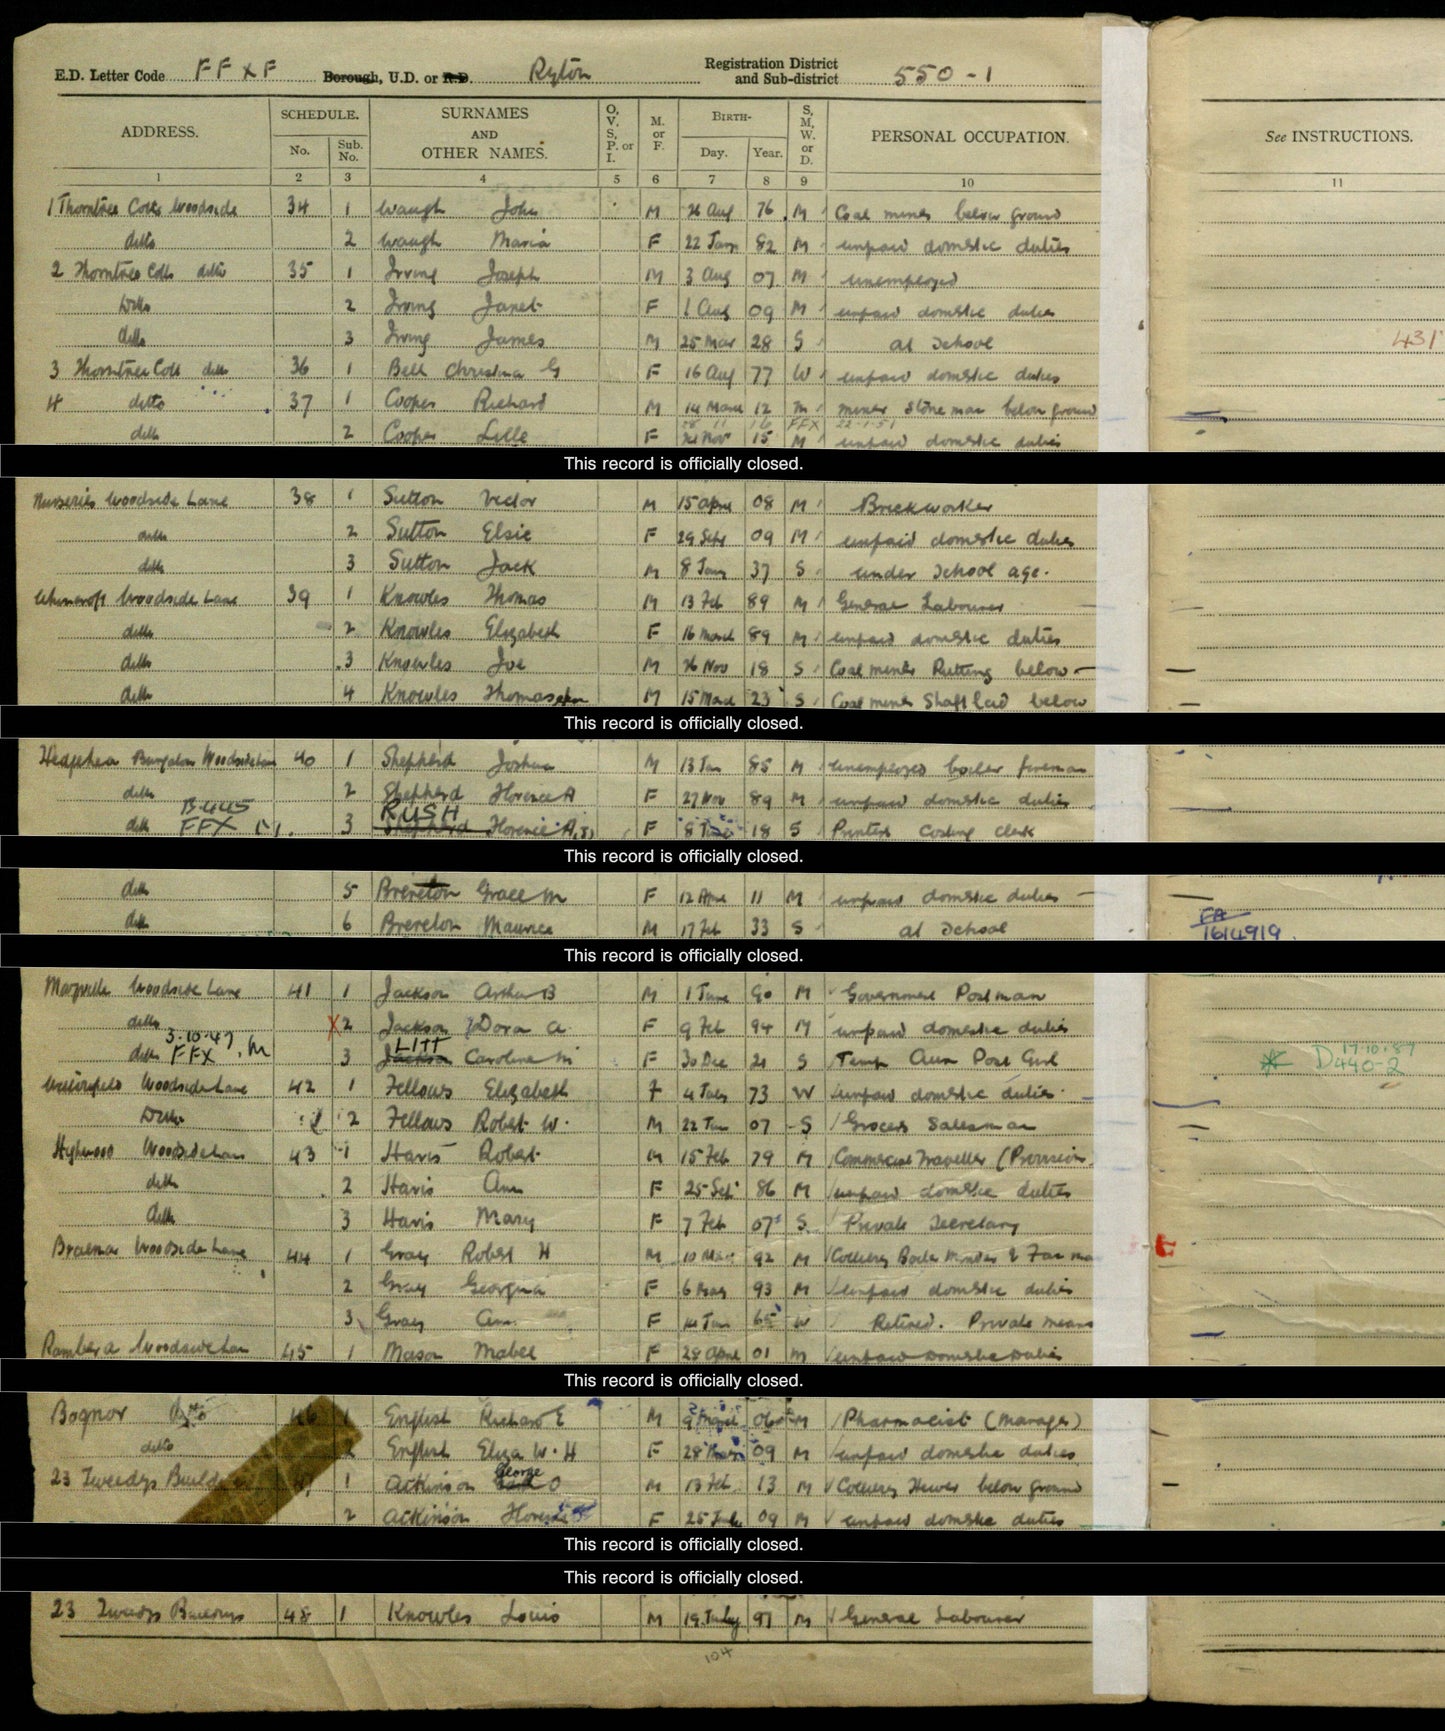 E.D. Letter Code FFXF Borough, U.D. or R.D. Ryton Registration District and Sub-district 550-1
ADDRESS. SCHEDULE. No. Sub. No. SURNAMES AND OTHER NAMES. O, V, S, P, or I. M. or F. BIRTH- Day. Year. S, M, W, or D. PERSONAL OCCUPATION. See INSTRUCTIONS.
1 2 3 4 5 6 7 8 9 10 11
1 Thorntree Cotts Woodside 34 1 Waugh John M 26 Aug 76 M Coal miner below ground
ditto 2 Waugh Maria F 22 Jan 82 M unpaid domestic duties
2 Thorntree Cotts ditto 35 1 Irving Joseph M 3 Aug 07 M unemployed
Ditto 2 Irving Janet F 1 Aug 09 M unpaid domestic duties
ditto 3 Irving James M 25 Mar 28 S at School
431
3 Thorntree Cott ditto 36 1 Bell Christina G F 16 Aug 77 W unpaid domestic duties
4 ditto 37 1 Cooper Richard M 14 March 12 M miner Stone man below ground
28 11 16 FFX 22-1-51
ditto 2 Cooper Lille F Nov 15 M unpaid domestic duties
This record is officially closed.
Nurseries Woodside Lane 38 1 Sutton Victor M 15 April 08 M Brickworker
ditto 2 Sutton Elsie F 29 Sept 09 M unpaid domestic duties
ditto 3 Sutton Jack M 8 Jan 37 S under School age.
Woodside Lane 39 1 Knowles Thomas M 13 Feb 89 M General Labourer
ditto 2 Knowles Elizabeth F 16 March 89 M unpaid domestic duties
ditto 3 Knowles Joe M 26 Nov 18 S Coal miner Putting below
ditto 4 Knowles Thomas M 15 March 23 S Coal miner Shaft Lad below
This record is officially closed.
Bungalow Woodside Lane 40 1 Shepherd Joshua M 13 Jan 85 M unemployed boiler fireman
ditto 2 Shepherd Florence A F 27 Nov 89 M unpaid domestic duties
B.445 RUSH
ditto FFX 3 Shepherd Florence A.J. F 8 18 S Printers Costing clerk
This record is officially closed.
ditto 5 Brereton Grace M F 12 11 M unpaid domestic duties
ditto 6 Brereton Maurice M 17 Feb 33 S at School
1614919
This record is officially closed.
Maryville Woodside Lane 41 1 Jackson Arthur B M 1 June 90 M Government Postman
ditto X 2 Jackson Dora A F 9 Feb 94 M unpaid domestic duties
3.10.47 LITT 17.10.87
ditto FFX . M 3 Jackson Caroline M F 30 Dec 21 S Temp Aux Post Girl D440-2
Woodside Lane 42 1 Fellows Elizabeth F 4 July 73 W unpaid domestic duties
Ditto 2 Fellows Robert W. M 22 Jan 07 S Grocers Salesman
Highwood Woodside Lane 43 1 Havis Robert M 15 Feb 79 M Commercial Traveller (Provision
ditto 2 Havis Ann F 25 Sept 86 M unpaid domestic duties
Ditto 3 Havis Mary F 7 Feb 07 S Private Secretary
Braemar Woodside Lane 44 1 Gray Robert H M 10 92 M Colliery & Fan man
2 Gray Georgina F 6 May 93 M unpaid domestic duties
3 Gray Ann F 14 Jan 65 W Retired. Private means
Woodside Lane 45 1 Mason Mabel F 28 April 01 M unpaid domestic duties
This record is officially closed.
Bognor Ditto 46 1 English Richard E M 9 06 M Pharmacist (Manager)
ditto 2 English Eliza W. H F 28 09 M unpaid domestic duties
George
23 Tweedys 1 Atkinson O M 13 Feb 13 M Colliery Hewer below ground
2 Atkinson Florence F 25 July 09 M unpaid domestic duties
This record is officially closed.
This record is officially closed.
23 Tweedys Buildings 48 1 Knowles Louis M 19 July 97 M General Labourer
104